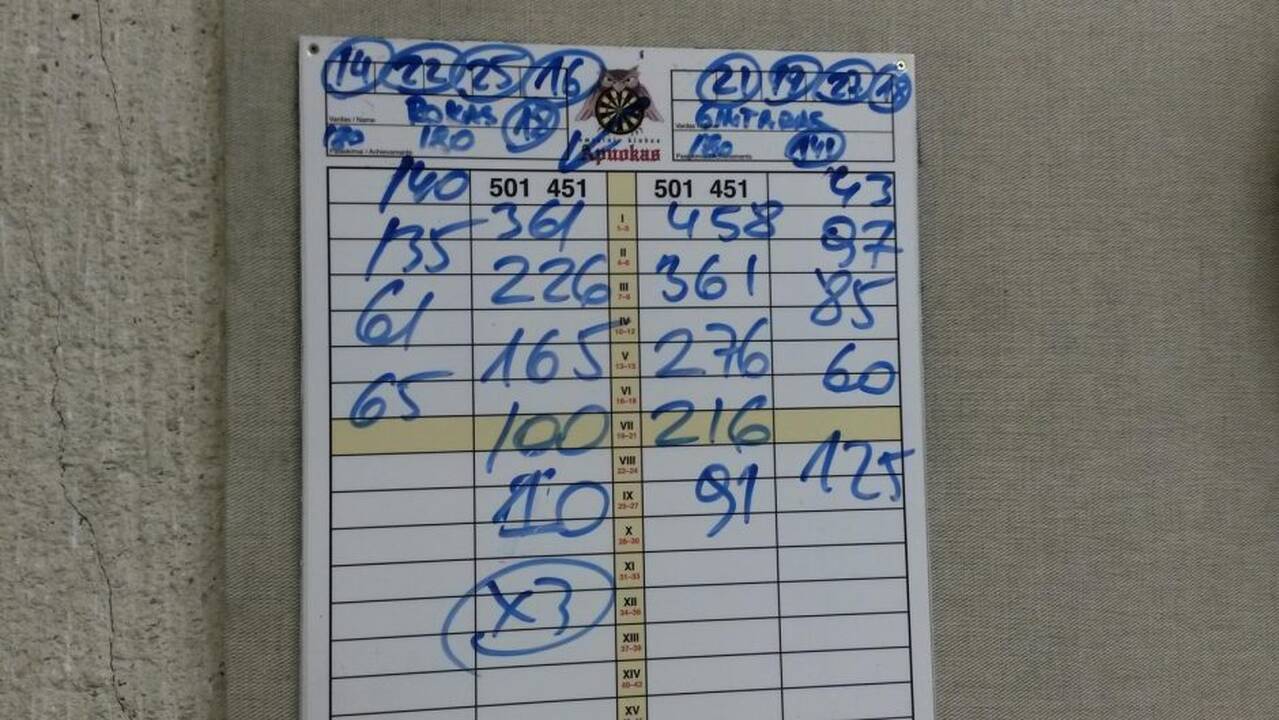 14 22 25 16 21 12 18
Vardas / Name ROKAS
GINTARAS
180 180 Apuokas 180 141
Pasiekimai / Achievements
140 501 451 501 451 43
361 I 458 97
1-3
135 226 II 361
4-6
III 85
7-9
61 165 IV 276
10-12
V 60
13-15
65 100 VI 216
16-18
VII
19-21
10 VIII 91 125
22-24
IX
25-27
X
28-30
XI
31-33
X3 XII
34-36
XIII
37-39
XIV
40-42
XV